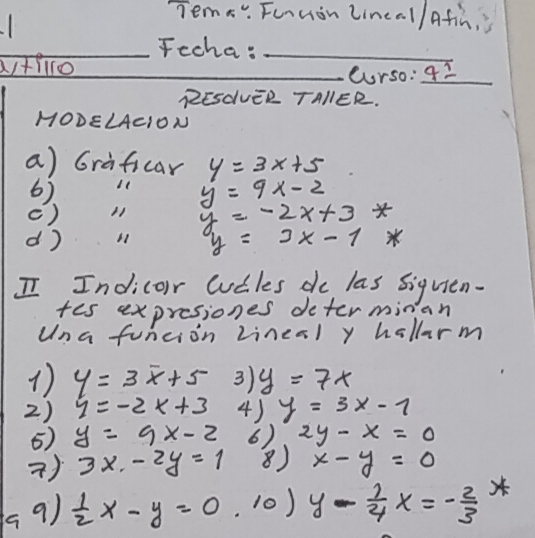 Tema: Función Lineal/Afin.
Fecha:
Curso: 9
RESOLVER TALLER.
MODELACION
a) Gráficar y = 3x+5
b) " y = 9x-2
c) " y = -2x+3 *
d) " y = 3x-1 *
II Indicar Cuáles de las siguien-
tes expresiones determinan
Una función Lineal y hallar m
1) y = 3x+5 3) y = 7x
2) y = -2x+3 4) y = 3x-1
5) y = 9x-2 6) 2y-x = 0
7) 3x.-2y=1 8) x-y = 0
9) 1/2 x - y = 0. 10) y - 1/4 x = -2/3 *